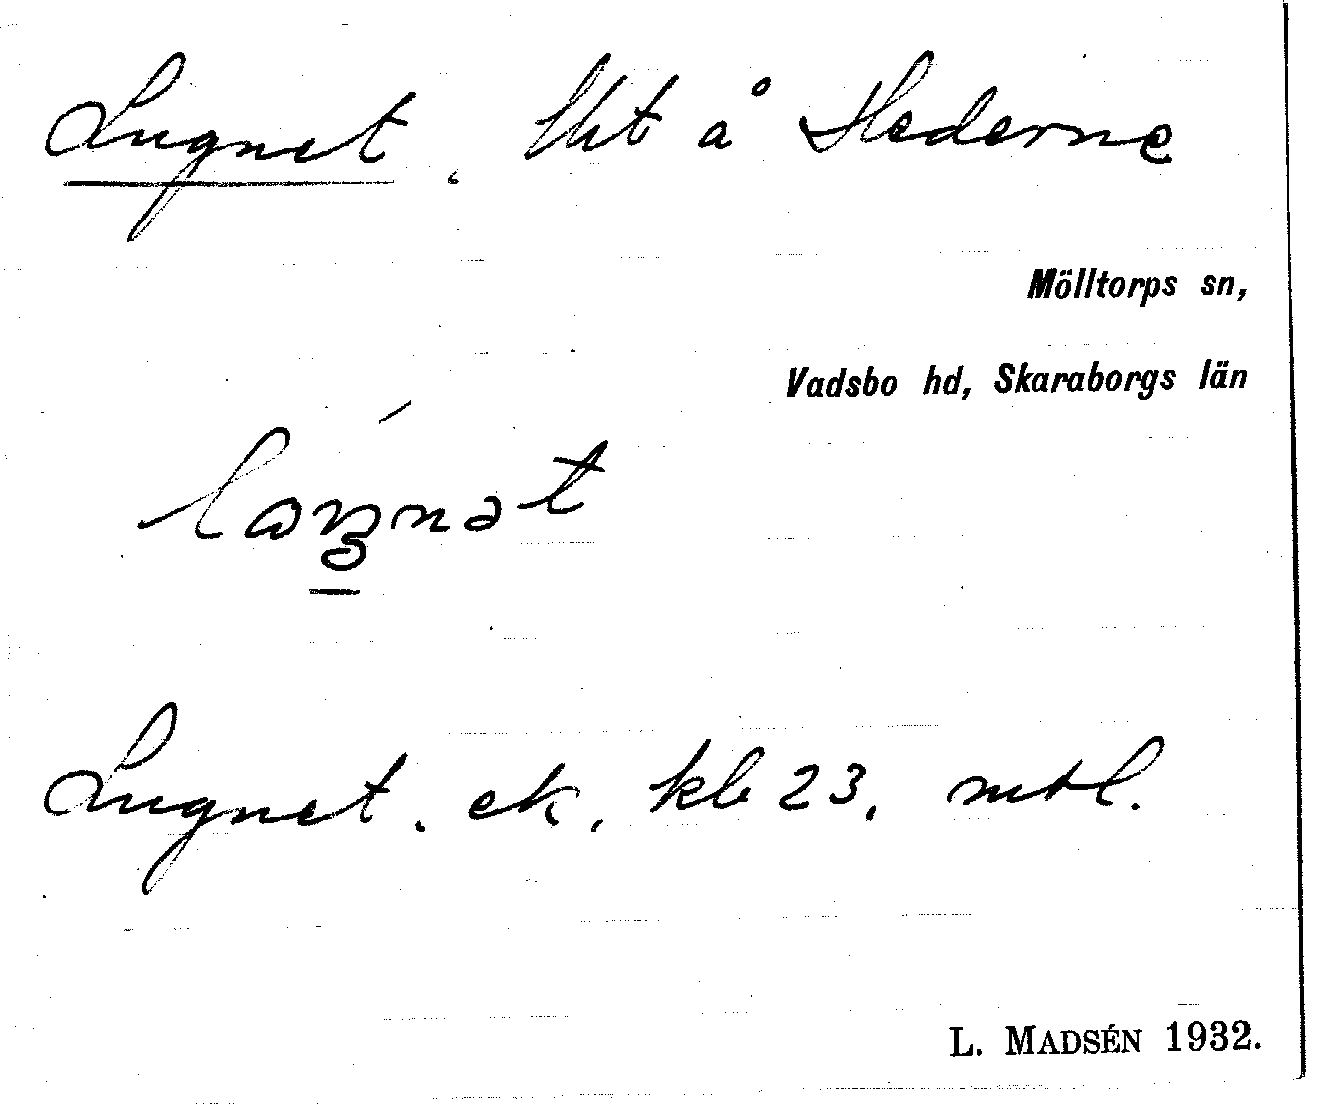 Lugnet, tht å Hederne
Mölltorps sn,
Vadsbo hd, Skaraborgs län
Lugnet. ek. kb 23. mtl.
L. MADSÉN 1932.